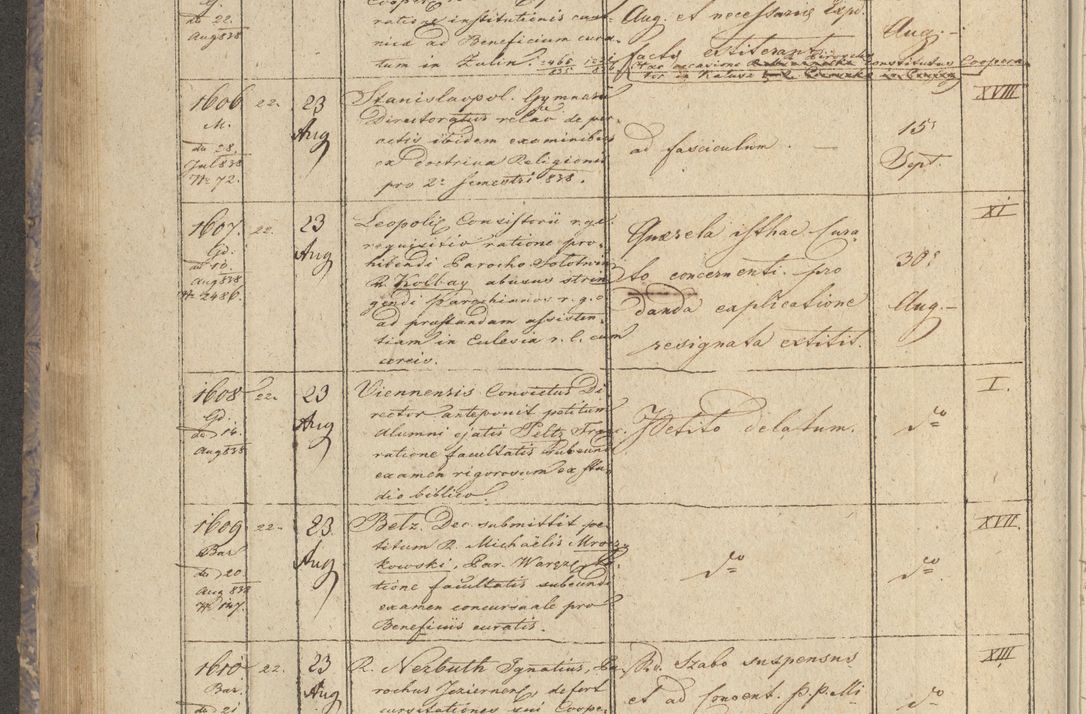 de 22
Aug 838
ratione institutionis cano-
nica ad Beneficium cura-
tum in
Aug. et necessaria Expd.
facta extiterant
Aug.
1606
22.
23
Aug
M.
de 28
Jul 838
Nr 72.
Stanislaopol. Gymnasii
Directoratus relao de per-
actis ibidem examinibus
ex doctrina Religionis
pro 2o semestri 838.
ad fasciculum.
15
Sept.
XVIII
1607.
22.
23
Aug
Gd.
Aug 838
Nr 2486.
Leopoli Consistorii r. g. c.
requisitio ratione pro-
hibendi Parocho
R. Kolbay abusus strin-
gendi Parochianos r. g. c.
ad praestandam assisten-
tiam in Eclesia r. l. cum
cereis.
Querela isthac Cura-
to concernenti pro
danda explicatione
resignata extitit.
30
Aug.
XI
1608
22.
23
Aug
Gd.
de 14.
Aug 838
Viennensis Convictus Di-
rector anteponit petitum
Alumni ejatis Peltz Franc.
ratione facultatis subeundi
examen rigorosum ex stu-
dio biblico.
Petito delatum.
do
I.
1609
22.
23
Aug
Bar.
de 20
Aug 838
Nr 147.
Belz. Dec. submittit pe-
titum R. Michaëlis Mrocz-
kowski, Par. Warez, ra-
tione facultatis subeundi
examen concursuale pro
Beneficiis curatis.
do
do
XVII
1610
22.
23
Aug
Bar.
de 21
R. Nerbuth Ignatius, Pa-
rochus Jeziernens defert
cursitationes sui Coope-
Rd. Szabo suspensus
et ad Convent. P.P. Mi-
do
XIII